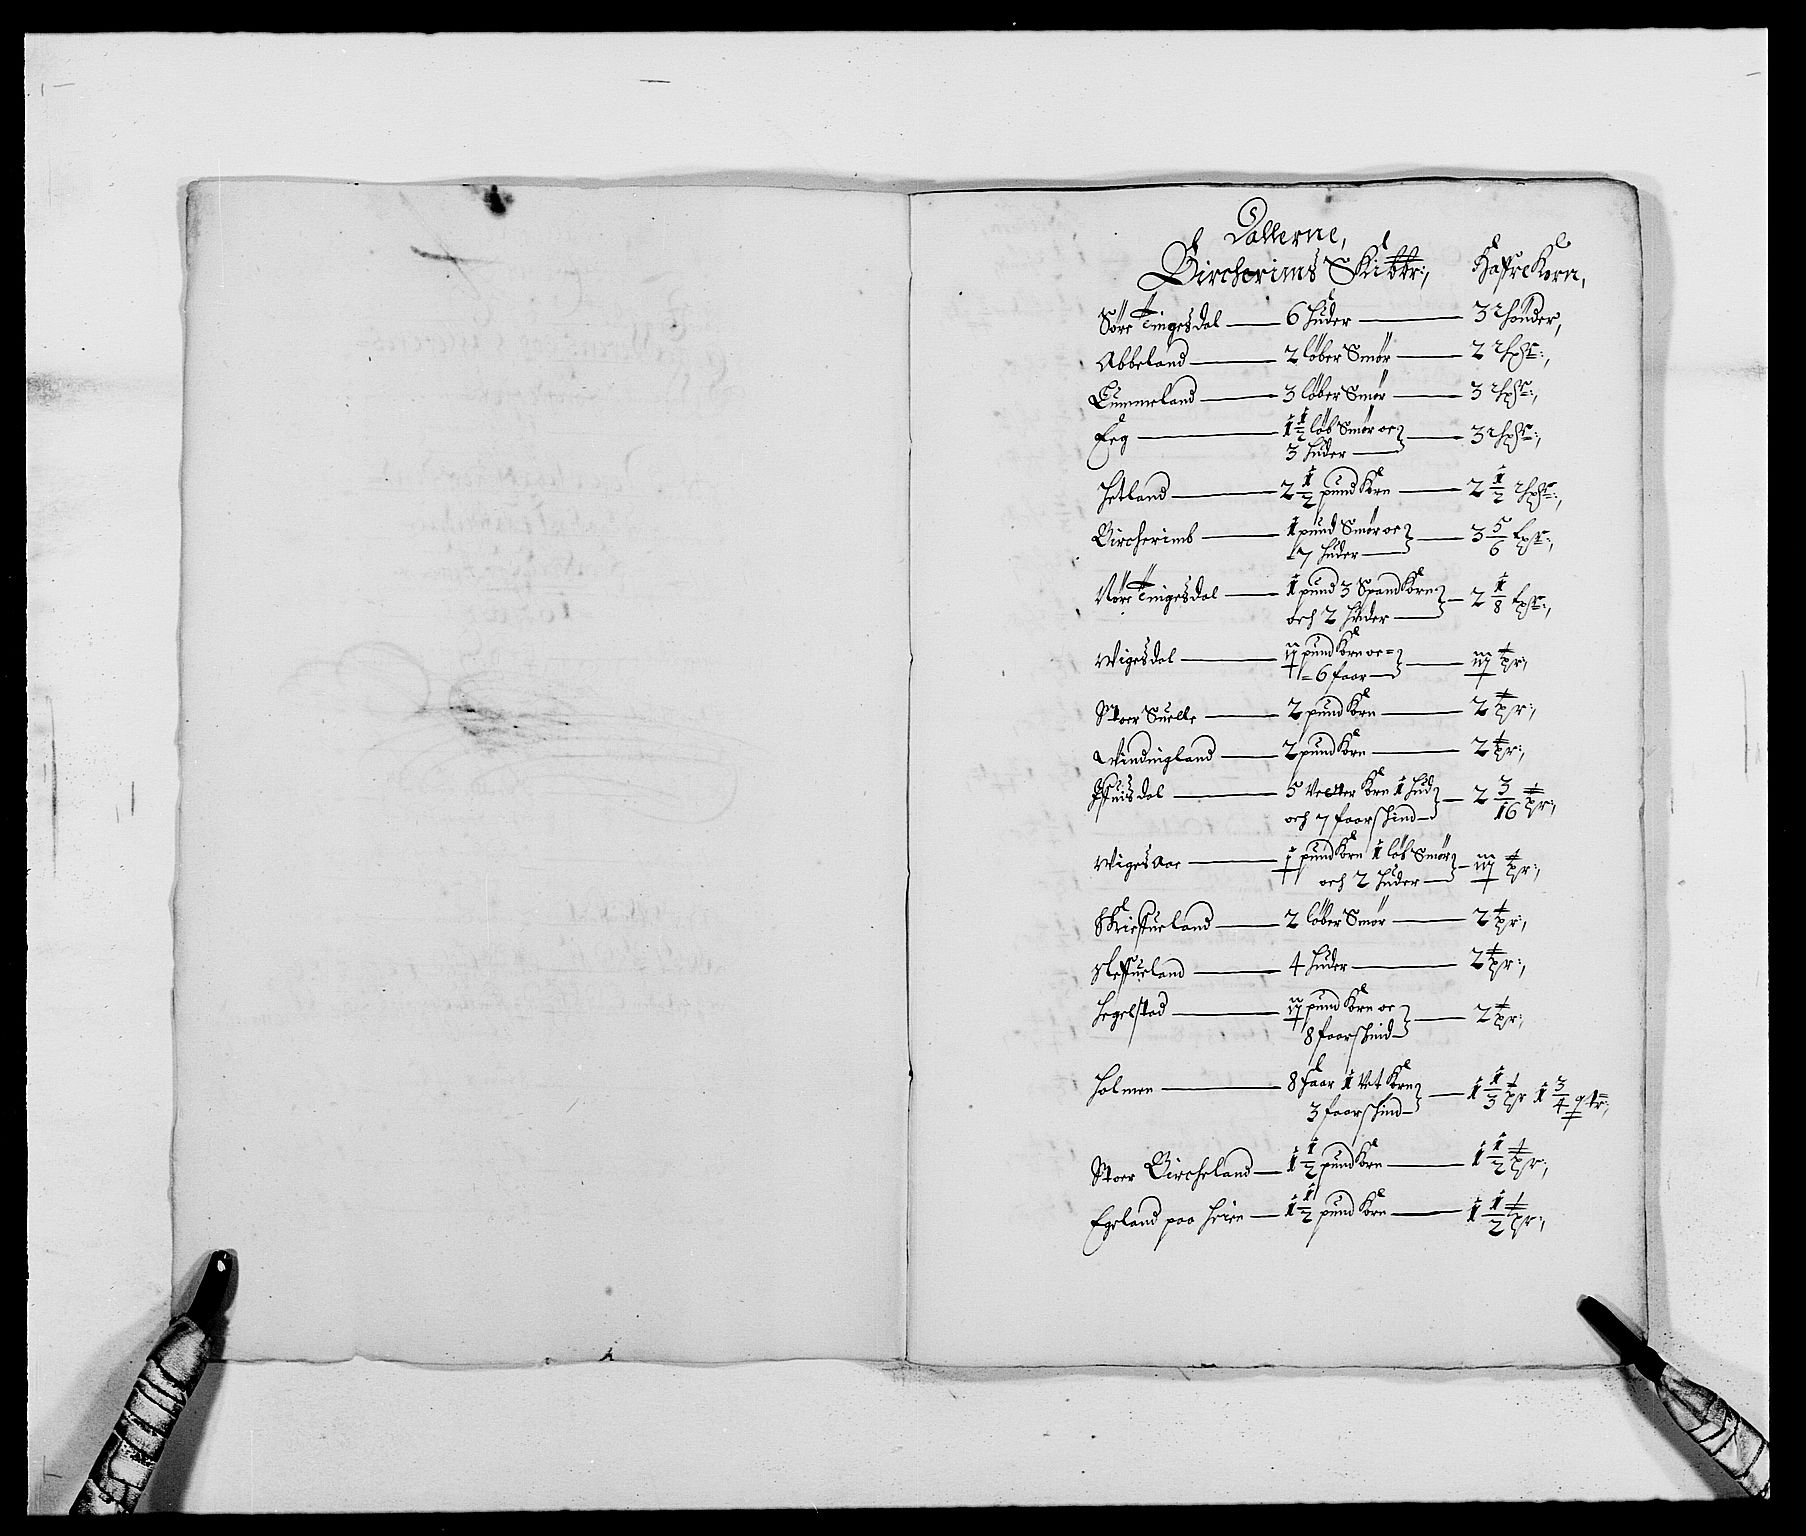 Dallerne,
Bircherims Skibbr:, Hafre Korn,
Söre Tingesdal — 6 huder — 3 thönder,
Abbeland — 2 löber Smör — 2 thr:,
Lummeland — 3 löber Smör — 3 thr:,
Eeg — 1½ löb Smör oc
3 huder — 3 thr:,
Hetland — 2½ pund Korn — 2½ thr:,
Bircherimb — 1 pund Smör oc
7 huder — 3 5/6 tr:,
Nöre Tingesdal — 1 pund 3 Spand Korn
och 2 huder — 2 1/8 tr:,
Wigesdal — pund Korn oc =
= 6 faar — tr:,
Stoer Suelle — 2 pund Korn — 2 tr:,
Windingland — 2 pund Korn — 2 tr:,
5 Vetter Korn 1 hud
och 7 faarschind — 2 3/16 tr:,
Wiges Aae — pund Korn 1 löb Smör
och 2 huder — tr:,
Skieffueland — 2 löber Smör — 2 tr:,
Sleffueland — 4 huder — 2 tr:,
Hegelstad — pund Korn oc
8 faarschind — 2 tr:,
Holmen — 8 faar 1 Vet Korn
3 faarschind — 1 1/3 tr 1 3/4 qtr:,
Stoer Bircheland — 1½ pund Korn — 1½ tr:,
Egeland paa Heien — 1½ pund Korn — 1½ tr:,